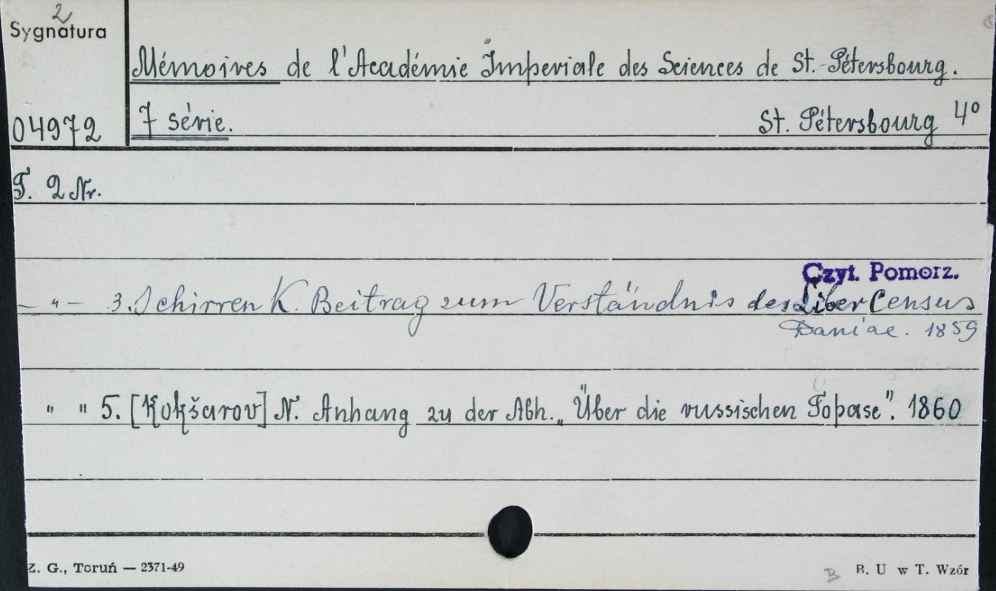 2
Sygnatura
Mémoires de l'Académie Imperiale des Sciences de St.-Pétersbourg.
04972
7 série.
St. Pétersbourg 4°
T. 2 Nr.
Czyt. Pomorz.
— " — 3. Schirren K. Beitrag zum Verständnis des Liber Census
Daniae. 1859
" " 5. [Kokšarov] N. Anhang zu der Abh. „Über die russischen Topase". 1860
Z. G., Toruń — 2371-49
B
B. U w T. Wzór